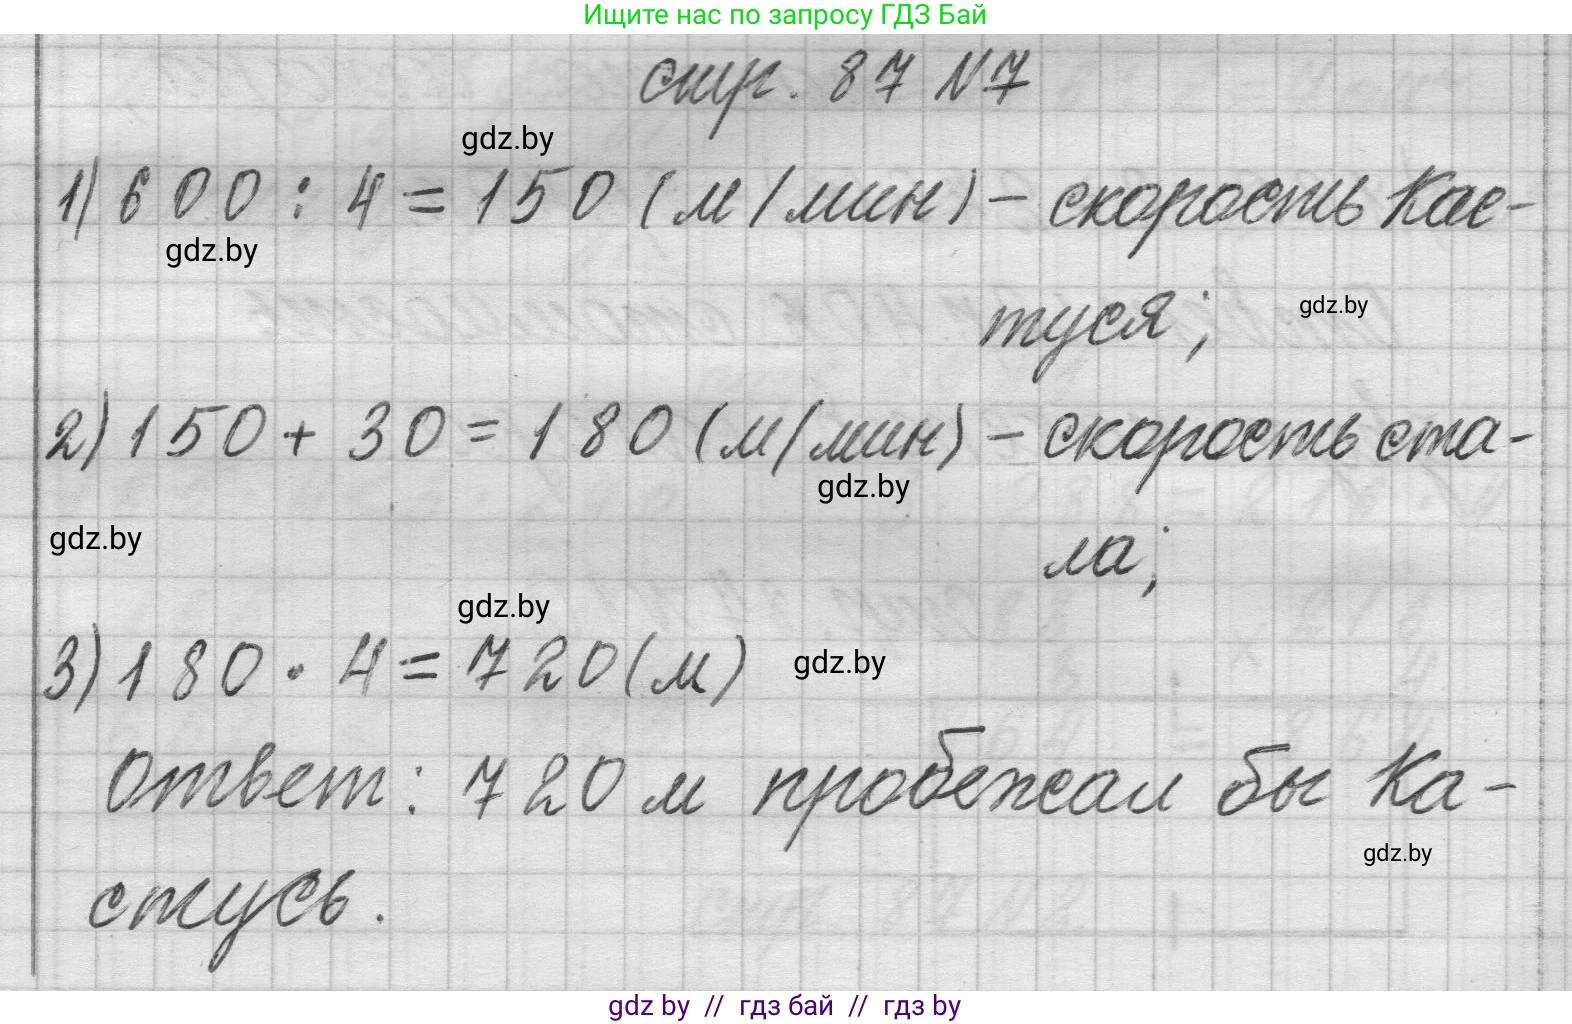 Ищите нас по запросу ГДЗ Бай
стр. 87 №7
gdz.by
1) 600 : 4 = 150 (м/мин) – скорость Кас-
gdz.by
туся;
gdz.by
2) 150 + 30 = 180 (м/мин) – скорость ста-
gdz.by
gdz.by
ла;
gdz.by
3) 180 · 4 = 720 (м)
gdz.by
Ответ: 720 м пробежал бы Ка-
gdz.by
стусь.
gdz by // гдз бай // гдз by